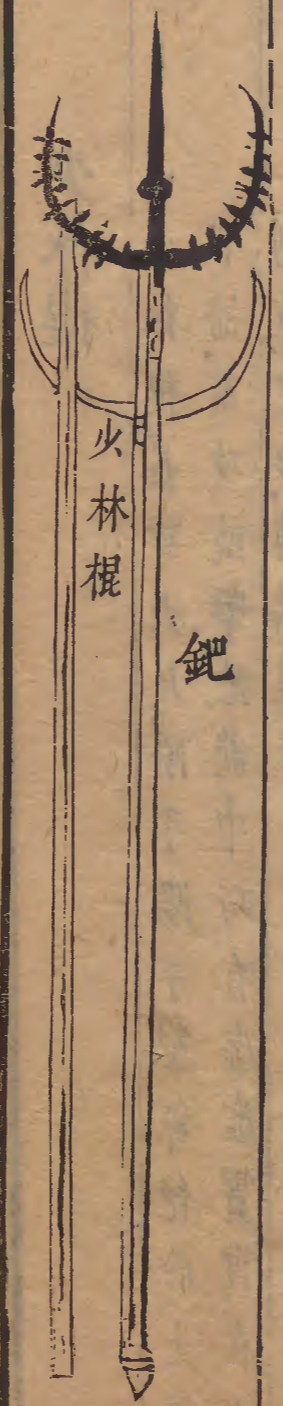 鈀
少林棍